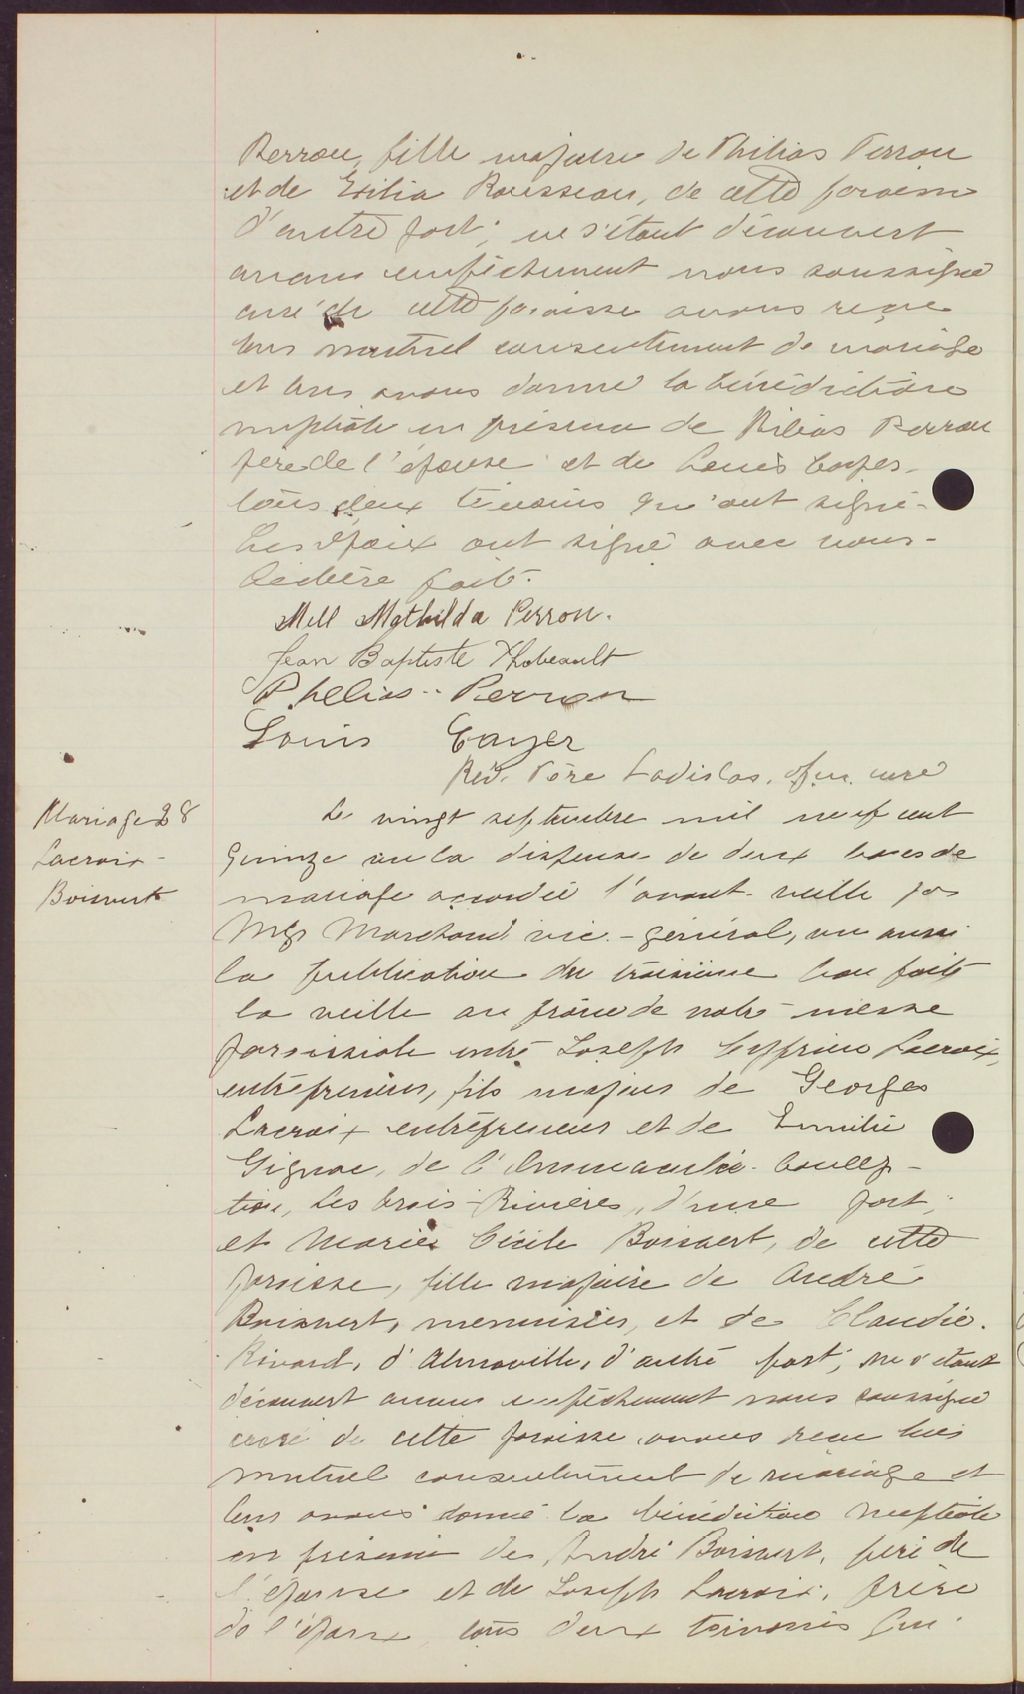 Perron, fille majeure de Philias Perron
et de Exilia Rousseau, de cette paroisse
d'autre part; ne s'étant découvert
aucun empêchement nous soussigné
curé de cette paroisse avons reçu
leur mutuel consentement de mariage
et leur avons donné la bénédiction
nuptiale en présence de Philias Perron
père de l'épouse et de Louis
tous deux témoins qui ont signé.
Les époux ont signé avec nous.
Lecture faite.
Mell Mathilda Perron.
Jean Baptiste Thobeault
Phelias Perron
Louis Gayer
Rév. Père Ladislas, o.f.m. curé
Mariage 28
Lacroix
Boisvert
Le vingt septembre mil neuf cent
quinze vu la dispense de deux bans de
mariage accordée l'avant-veille par
Mgr Marchand vic.-général, vu aussi
la publication du troisième ban faite
la veille au prône de notre messe
paroissiale entre Joseph Cyprien Lacroix,
entrepreneur, fils majeur de Georges
Lacroix entrepreneur et de Emilie
Gignac, de l'Immaculée-Concep-
tion, des Trois-Rivières, d'une part;
et Marie Cécile Boisvert, de cette
paroisse, fille majeure de André
Boisvert, menuisier, et de Claudie
Rivard, d'Almaville, d'autre part; ne s'étant
découvert aucun empêchement nous soussigné
curé de cette paroisse avons reçu leur
mutuel consentement de mariage et
leur avons donné la bénédiction nuptiale
en présence de André Boisvert, père de
l'épouse et de Joseph Lacroix, frère
de l'époux, tous deux témoins qui